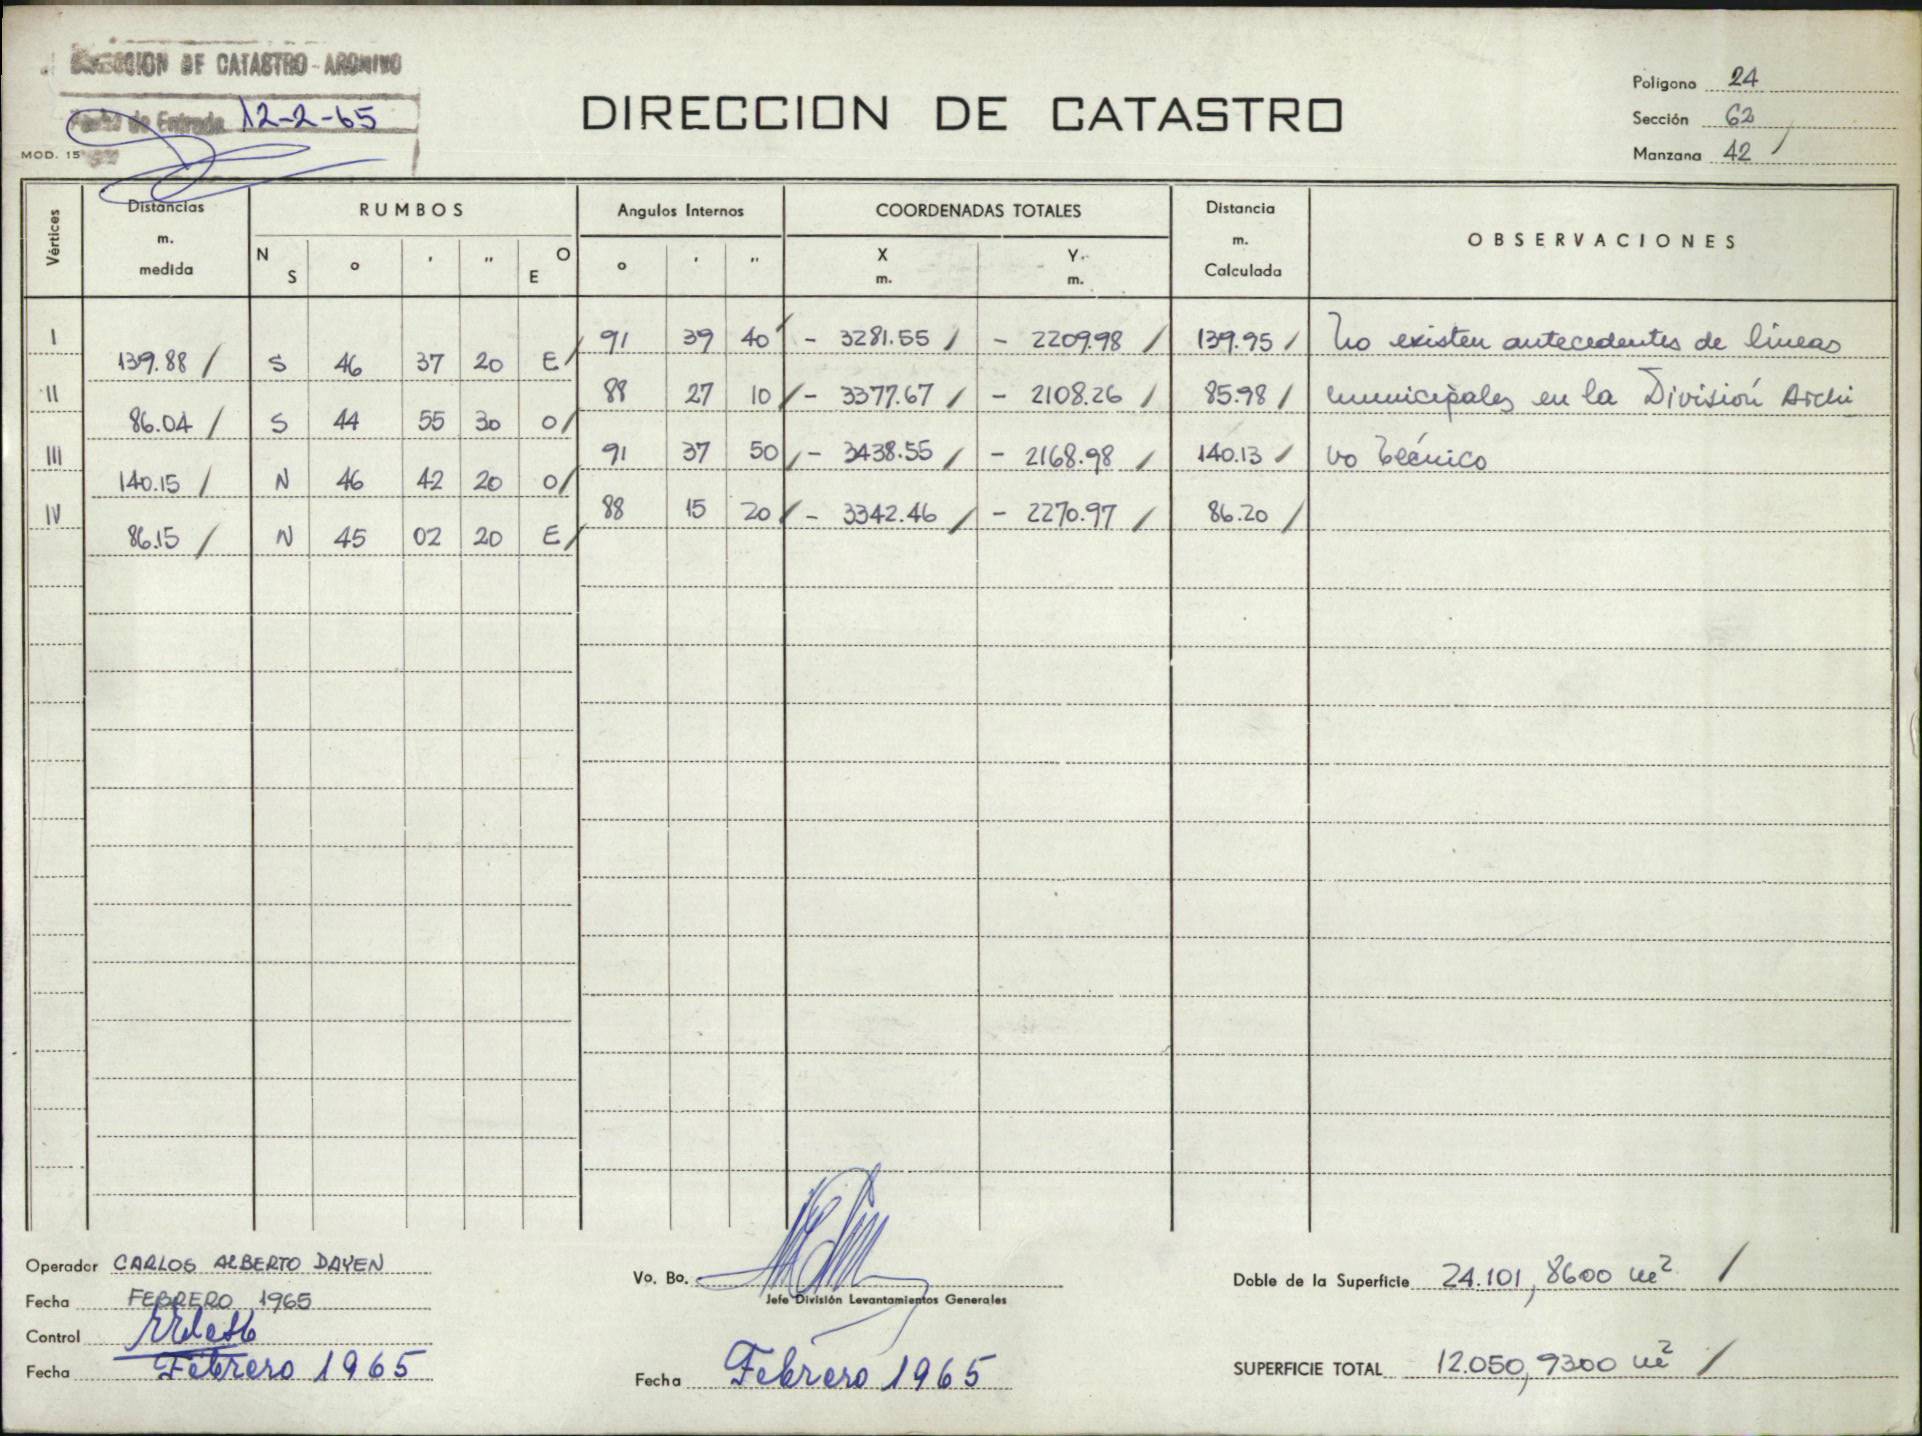 DIRECCION DE CATASTRO - ARCHIVO
Fecha de Entrada 12-2-65
MOD. 15
DIRECCION DE CATASTRO
Polígono 24
Sección 62
Manzana 42
Vértices Distancias m. medida RUMBOS Angulos Internos COORDENADAS TOTALES Distancia m. Calculada OBSERVACIONES
N S o ' " E O o ' " X m. Y m.
I 91 39 40 - 3281.55 - 2209.98 139.95 No existen antecedentes de líneas
139.88 S 46 37 20 E
II 88 27 10 - 3377.67 - 2108.26 85.98 municipales en la División Archi
86.04 S 44 55 30 O
III 91 37 50 - 3438.55 - 2168.98 140.13 vo Técnico
140.15 N 46 42 20 O
IV 88 15 20 - 3342.46 - 2270.97 86.20
86.15 N 45 02 20 E
Operador CARLOS ALBERTO DAYEN
Fecha FEBRERO 1965
Control
Fecha Febrero 1965
Vo. Bo.
Jefe División Levantamientos Generales
Fecha Febrero 1965
Doble de la Superficie 24.101,8600 m²
SUPERFICIE TOTAL 12.050,9300 m²